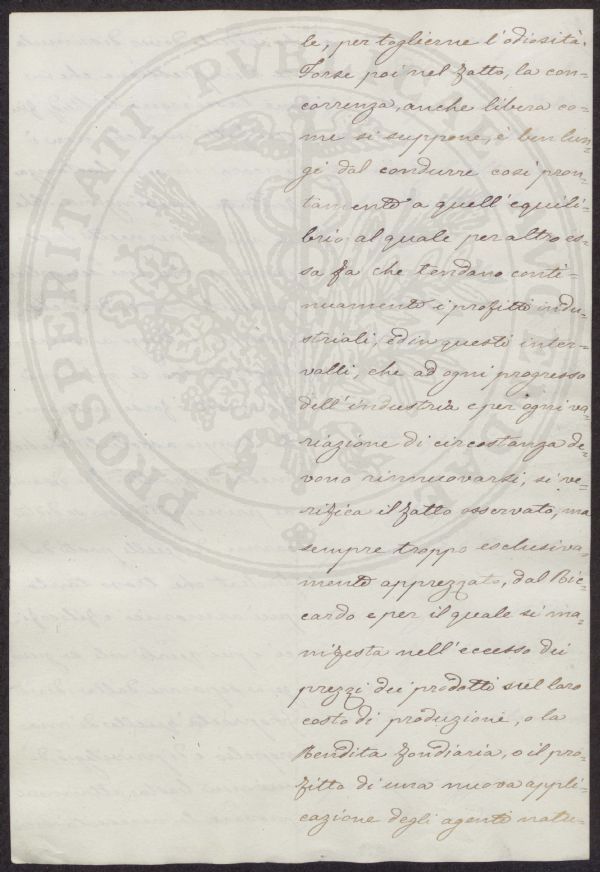 le, per toglierne l'odiosità.
Forse poi nel fatto, la con=
correnza, anche libera co=
me si suppone, è ben lun=
gi dal condurre così pron=
tamente a quell'equili=
brio, al quale per altro es=
sa fa che tendano conti=
nuamente i profitti indu=
striali, ed in questi inter=
valli, che ad ogni progresso
dell'industria e per ogni va=
riazione di circostanza de=
vono rinnuovarsi, si ve=
rifica il fatto osservato, ma
sempre troppo esclusiva=
mente apprezzato, dal Ric=
cardo e per il quale si ma=
nifesta nell'eccesso dei
prezzi dei prodotti sul loro
costo di produzione, o la
Rendita fondiaria, o il pro=
fitto di una nuova appli=
cazione degli agenti natu=
PROSPERITATI PUBLICAE